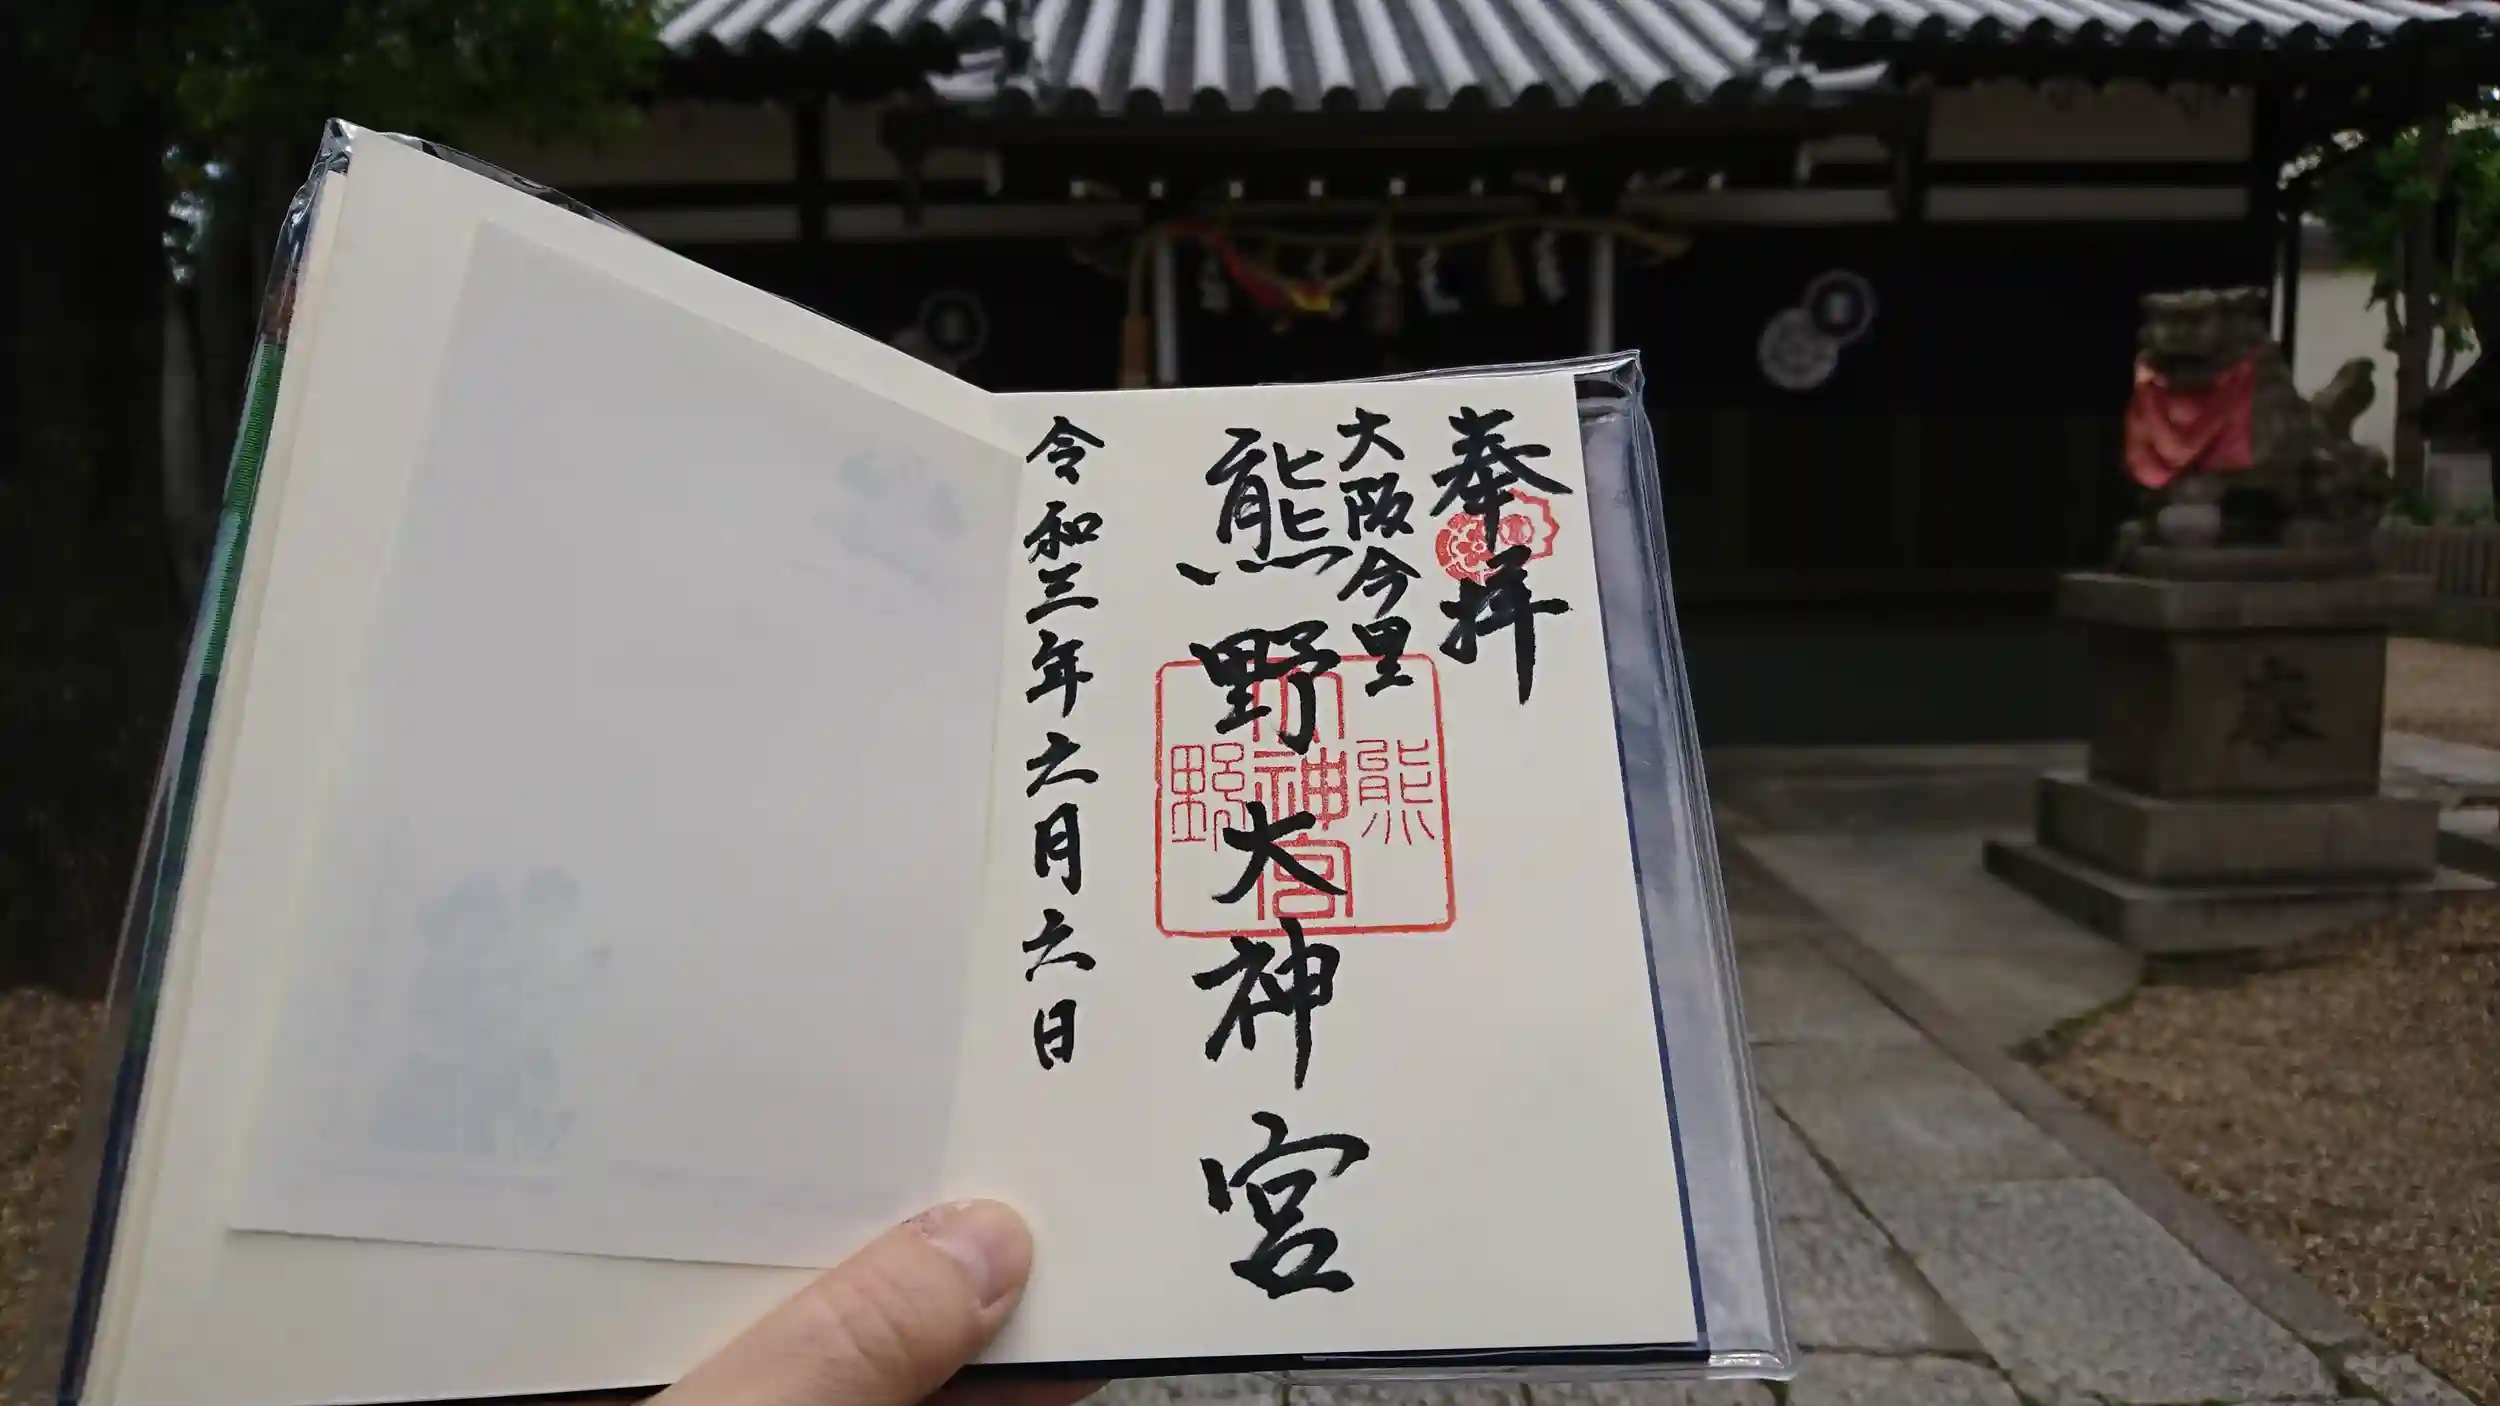 奉拝
大阪今里
熊野大神宮
令和三年六月六日
熊野
大神宮